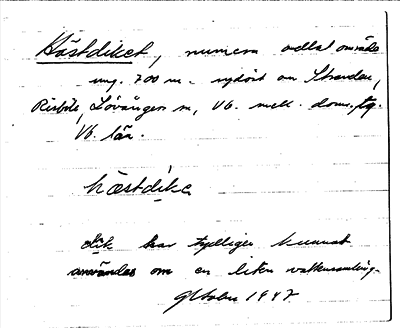 Hästdiket, numera odlat område
ung. 700 m. sydöst om Stranden,
Risböle, Lövånger sn, Vb. mell. doms. tg.
Vb. län.
hæstdike
dik har tydligen kunnat
användas om en liten vattensamling.
1947